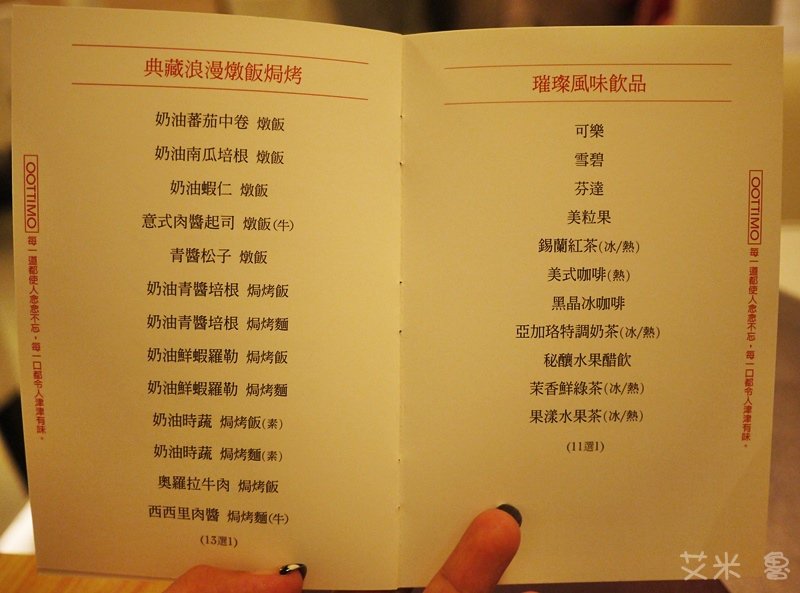 典藏浪漫燉飯焗烤
奶油蕃茄中卷 燉飯
奶油南瓜培根 燉飯
奶油蝦仁 燉飯
意式肉醬起司 燉飯(牛)
青醬松子 燉飯
奶油青醬培根 焗烤飯
奶油青醬培根 焗烤麵
奶油鮮蝦羅勒 焗烤飯
奶油鮮蝦羅勒 焗烤麵
奶油時蔬 焗烤飯(素)
奶油時蔬 焗烤麵(素)
奧羅拉牛肉 焗烤飯
西西里肉醬 焗烤麵(牛)
(13選1)
OOTTIMO 每一道都使人念念不忘,每一口都令人津津有味。
璀璨風味飲品
可樂
雪碧
芬達
美粒果
錫蘭紅茶(冰/熱)
美式咖啡(熱)
黑晶冰咖啡
亞加珞特調奶茶(冰/熱)
秘釀水果醋飲
茉香鮮綠茶(冰/熱)
果漾水果茶(冰/熱)
(11選1)
OOTTIMO 每一道都使人念念不忘,每一口都令人津津有味。
艾米 魯